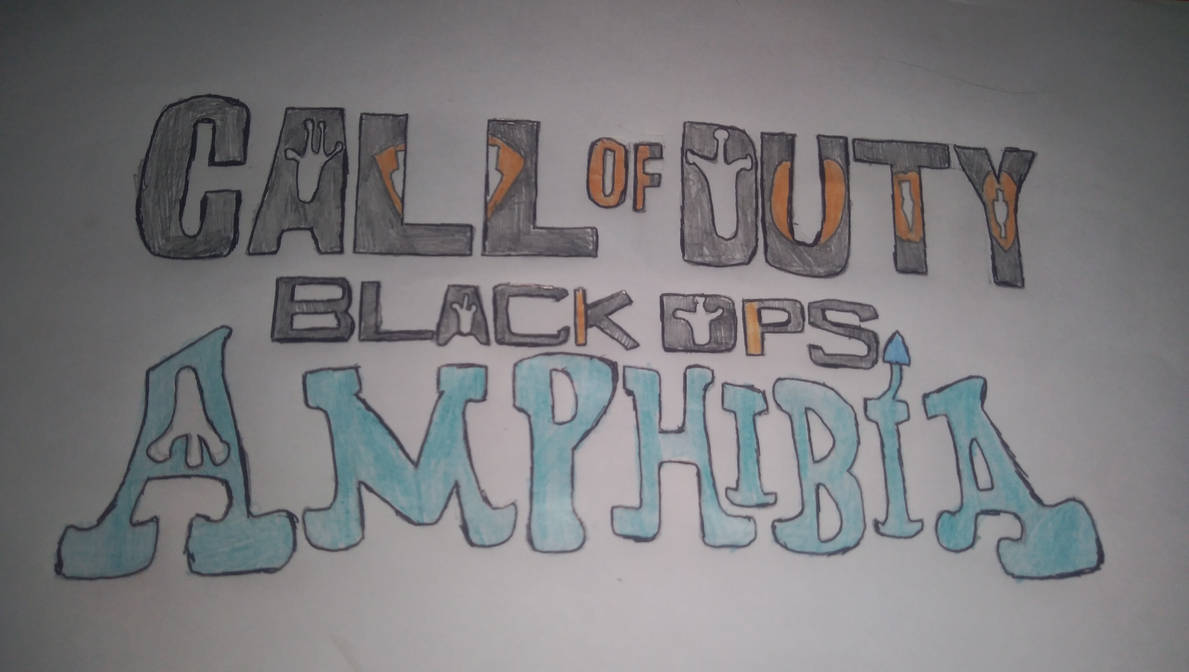 CALL OF DUTY
BLACK OPS
AMPHIBIA